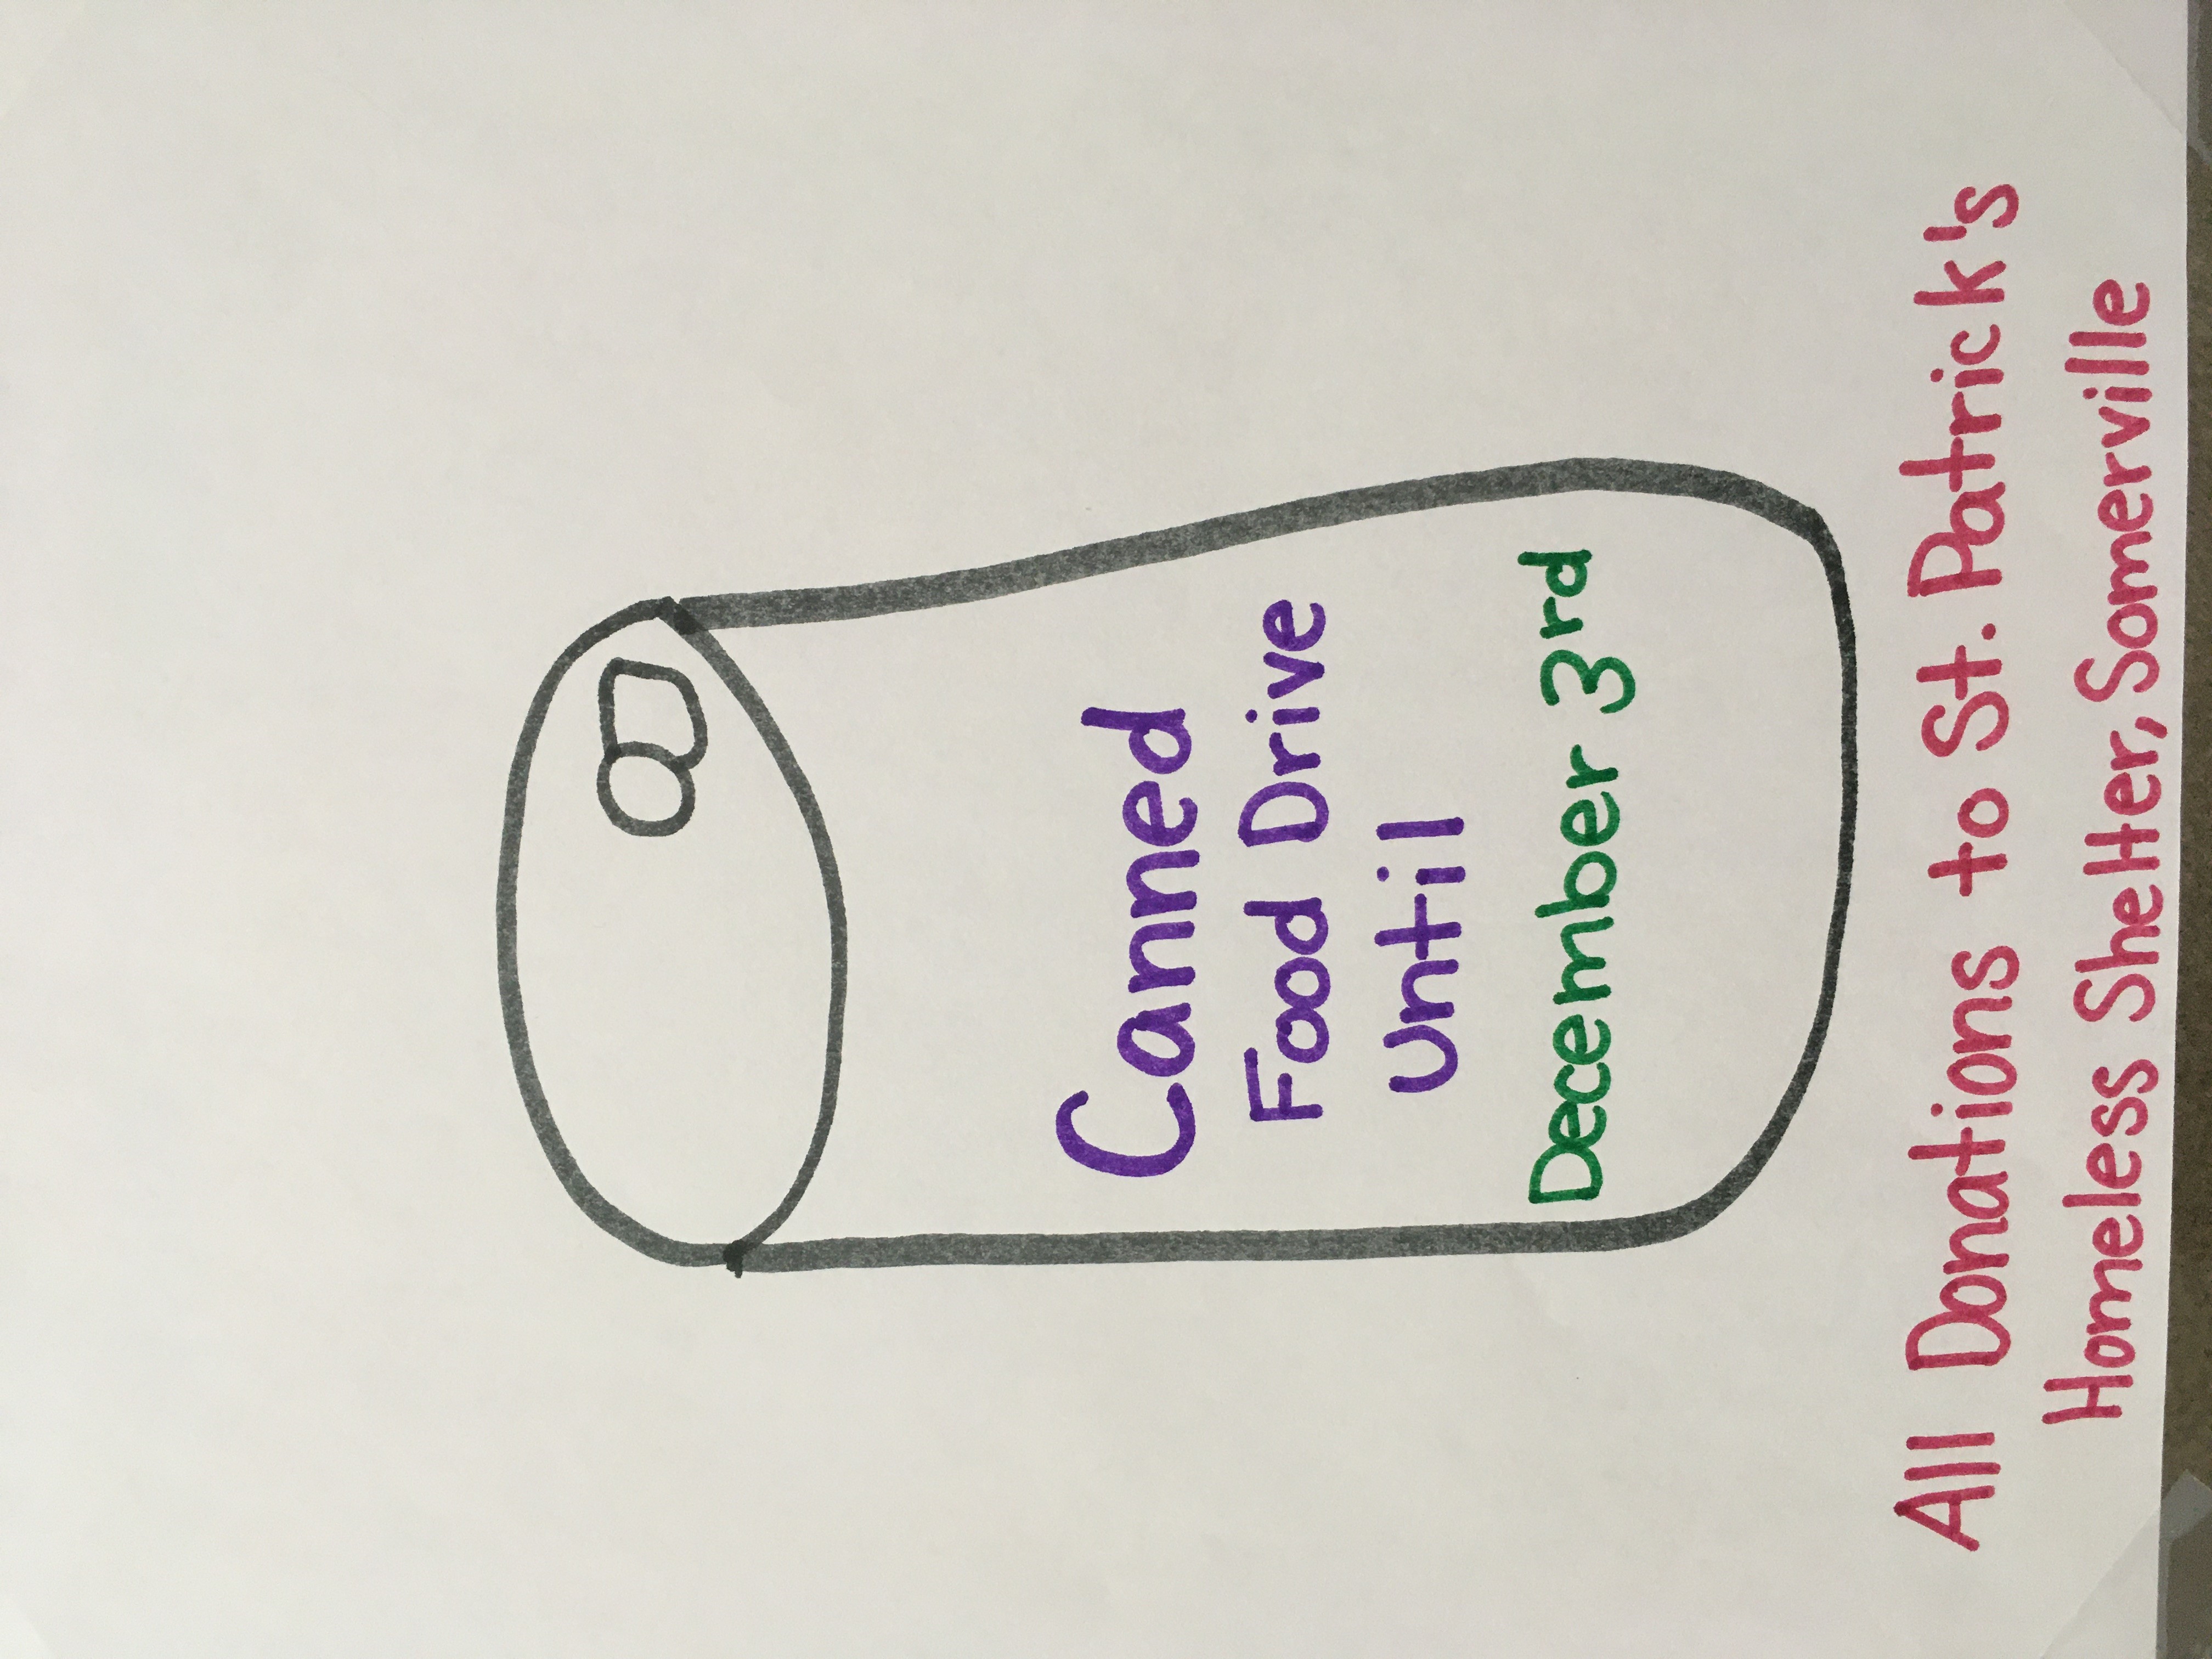 Canned
Food Drive
Until
December 3rd
All Donations to St. Patrick's
Homeless Shelter, Somerville